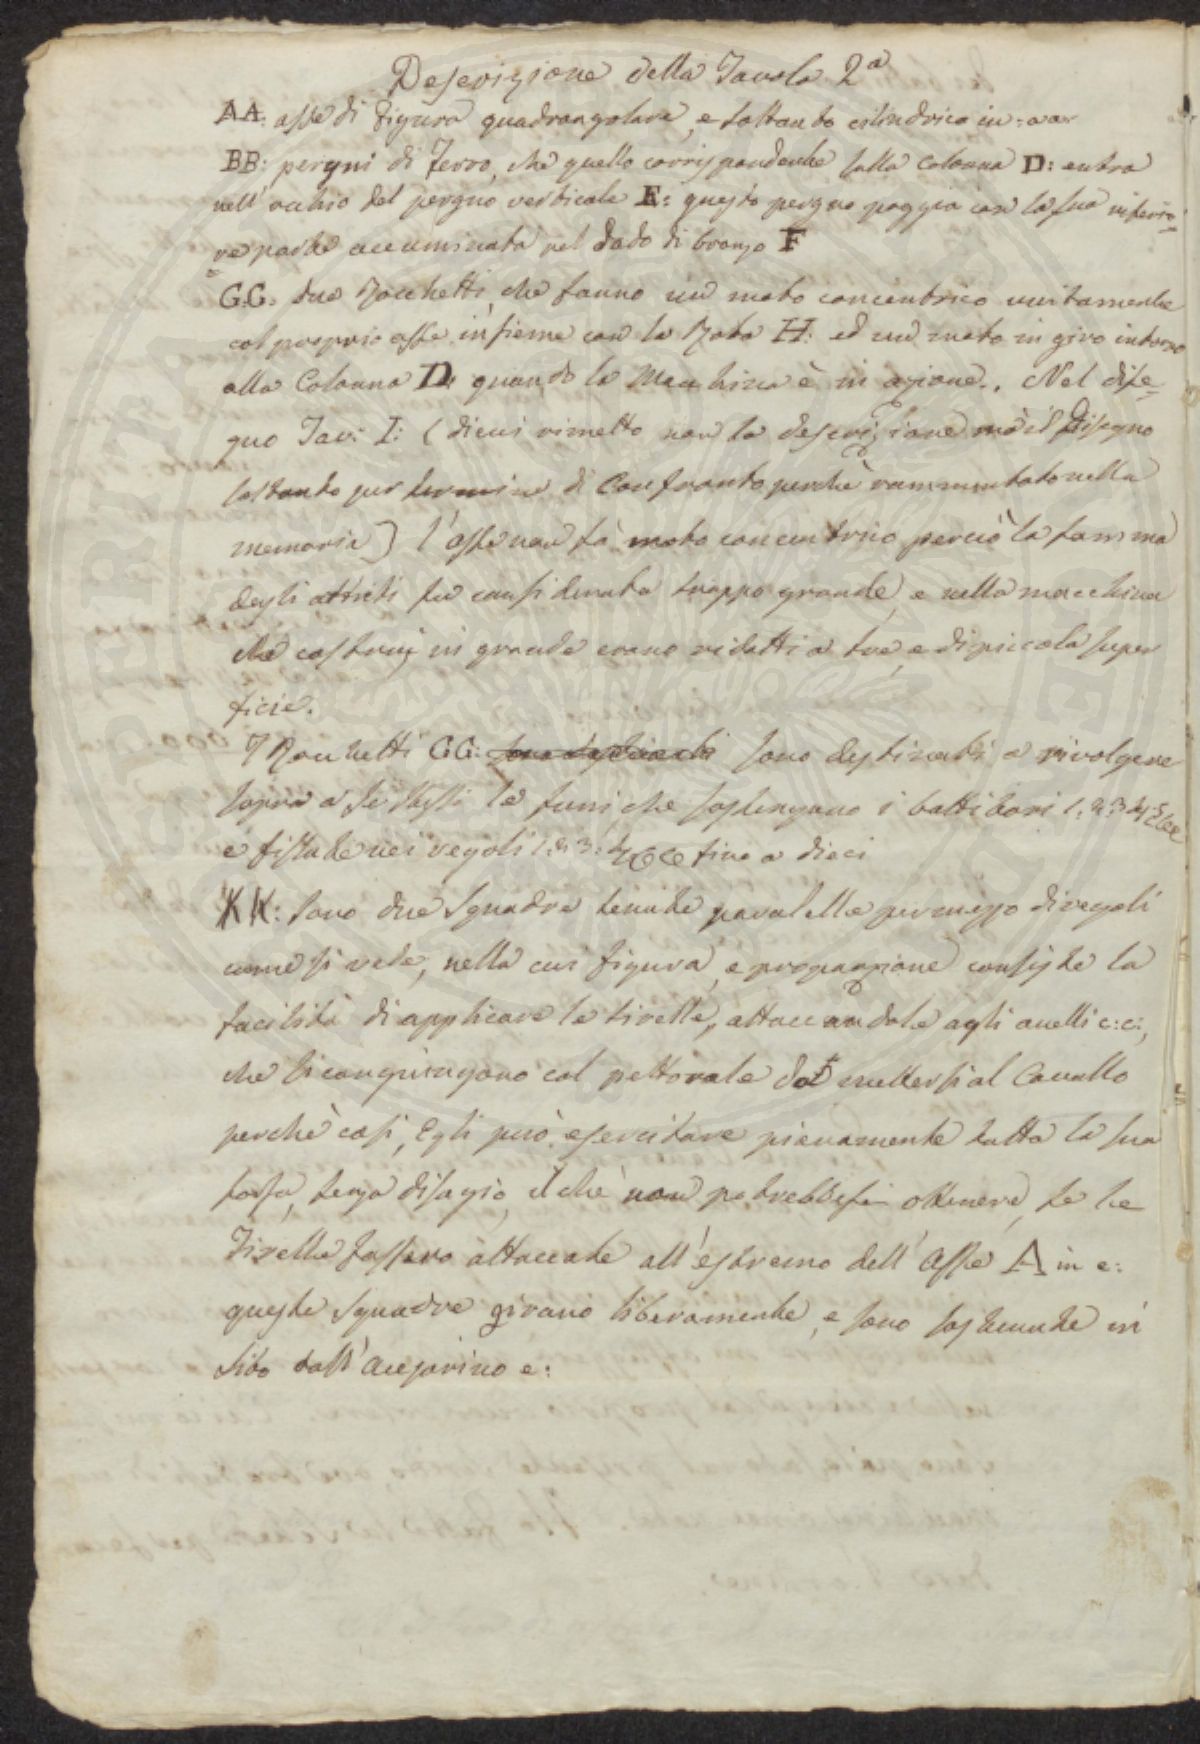 Descrizione della Tavola 2ª
AA: asse di figura quadrangolare, e soltanto cilindrico in: aa:
BB: pergni di ferro, che quello corrispondente sulla Colonna D: entra
nell'occhio del pergno verticale E: questo pergno poggia con la sua inferio=
=re parte accuminata nel dado di bronzo F
GG: due Rocchetti, che fanno un moto concentrico unitamente
col proprio asse insieme con la Rota H: ed un moto in giro intorno
alla Colonna D, quando la Machina è in azione. Nel dise=
gno Tav: I: (di cui rimetto non la descrizione mà il Disegno
soltanto per termine di Confronto perchè rammentato nella
memoria) l'asse non fà moto concentrico perciò la somma
degli attriti fu considerata troppo grande, e nella macchina
che costruij in grande erano ridotti a tre, e di piccola super
ficie.
I Rocchetti GG: sono destinati a rivolgere
sopra a se stessi le funi, che sostengono i battitori 1: 2: 3: 4: Ecc
e fissate nei regoli 1: 2: 3: 4 Ecc fino a dieci
KK: sono due squadre tenute paralelle per mezzo di regoli
come si vede, nella cui figura, e proporzione consiste la
facilità di applicare le tirelle, attaccandole agli anelli c:c:,
che si congiungono col pettorale da mettersi al Cavallo
perchè così, Egli può esercitare pienamente tutta la sua
forsa, senza disagio, il chè non potrebbesi ottenere, se le
Tirelle fossero attaccate all'estremo dell'Asse A in e:
queste squadre girano liberamente, e sono sostenute in
sito dall'Acciarino e: